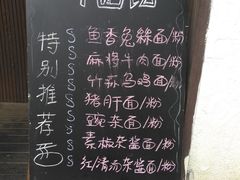 特别推荐
S 鱼香兔絲面/粉
S 麻辣牛肉面/粉
S 竹荪乌鸡面/粉
S 猪肝面/粉
S 豌杂面/粉
S 素椒杂酱面/粉
S 红/清汤杂酱面/粉